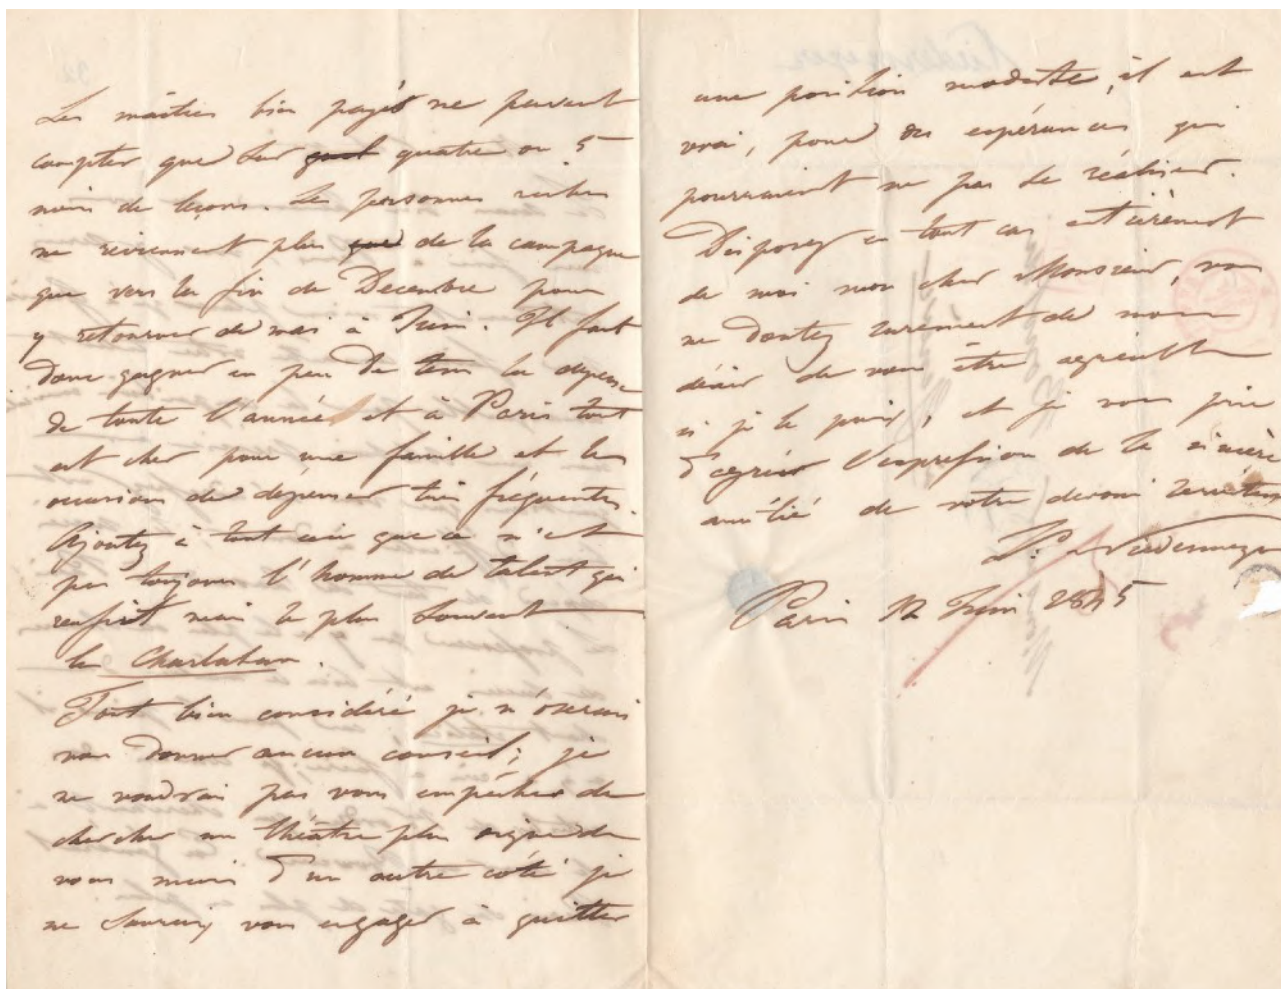 Les maitres bien payés ne peuvent
compter que sur quatre ou 5
mois de leçons. Les personnes riches
ne reviennent plus que de la campagne
que vers la fin de Décembre pour
y retourner de mai à Juin. Il faut
donc gagner en peu de tems la dépense
de toute l'année et à Paris tout
est cher pour une famille et les
occasions de dépenser très fréquentes.
Ajoutez à tout ceci que ce n'est
pas toujours l'homme de talent qui
réussit mais le plus souvent
le Charlatan.
Tout bien considéré je n'oserais
vous donner aucun conseil; je
ne voudrais pas vous empêcher de
chercher un théâtre plus digne de
vous mais d'un autre côté je
ne saurais vous engager à quitter
une position modeste, il est
vrai, pour des espérances qui
pourraient ne pas se réaliser.
Disposez en tout cas entièrement
de moi mon cher Monsieur, vous
ne doutez surement de mon
désir de vous être agréable
si je le puis, et je vous prie
d'agréer l'expression de la sincère
amitié de votre dévoué serviteur
L. Niedermeyer
Paris 12 Juin 1845
Niedermeyer
92